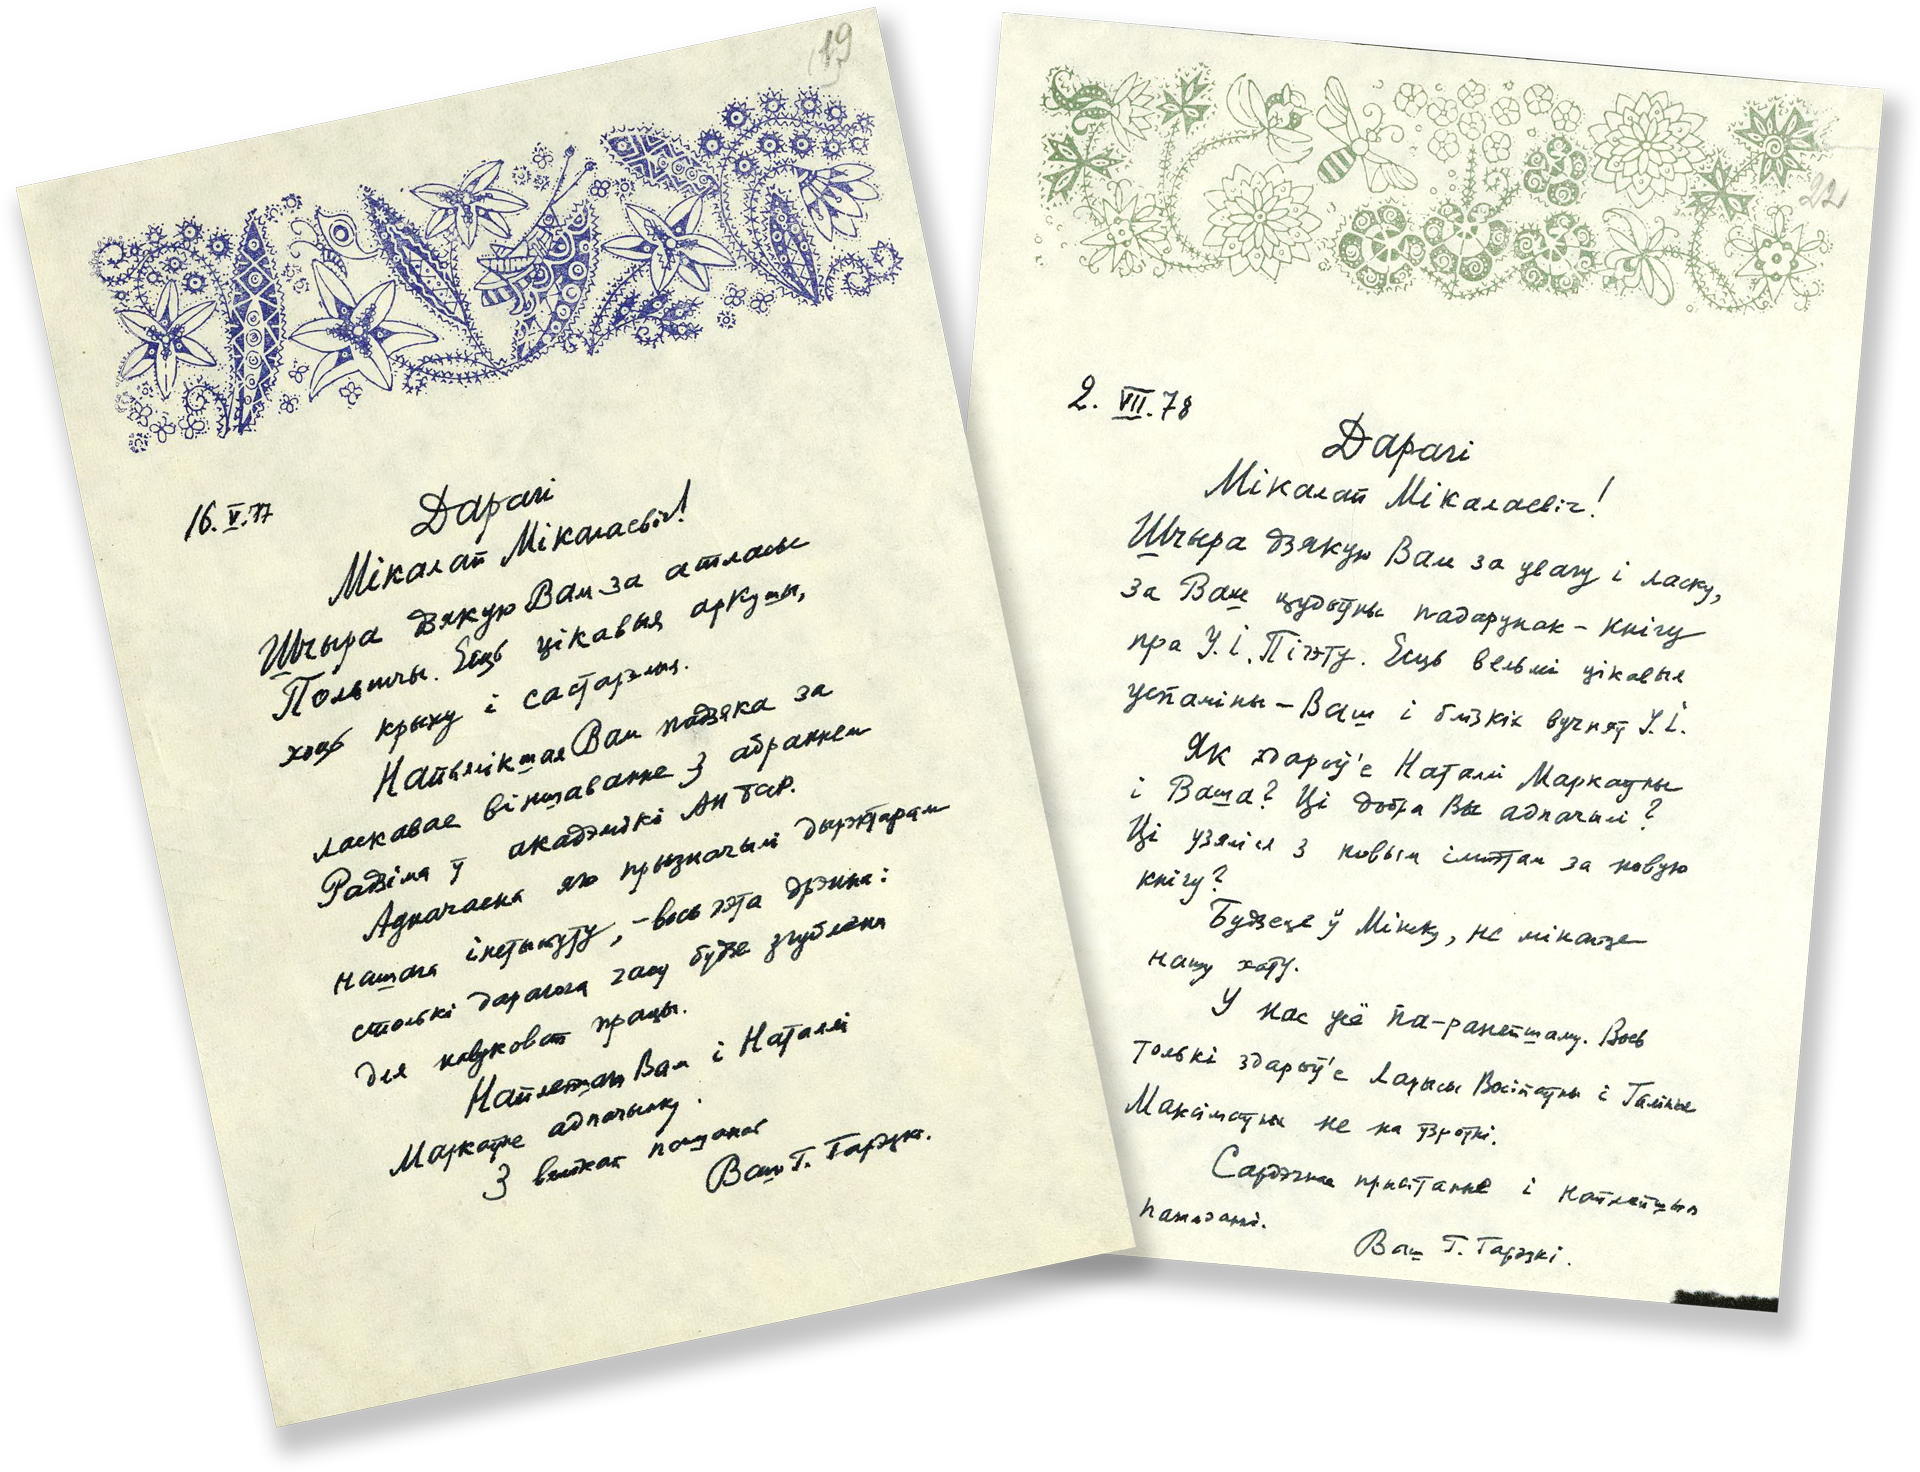 19
16.V.77
Дарагі
Мікалай Мікалаевіч!
Шчыра дзякую Вам за атласы
Польшчы. Ёсць цікавыя аркушы,
хоць крыху і састарэлыя.
Найвялікшая Вам падзяка за
ласкавае віншаванне з абраннем
Радзіма ў акадэмікі АН БССР.
Адначасна яго прызначылі дырэктарам
нашага інстытуту, – вось гэта дрэнна:
столькі дарагога часу будзе згублена
для навуковай працы.
Найлепшага Вам і Наталлі
Маркаўне адпачынку.
З вялікай пашанай
Ваш Г. Гарэцкі.
22
2. VII.78
Дарагі
Мікалай Мікалаевіч!
Шчыра дзякую Вам за увагу і ласку,
за Ваш цудоўны падарунак – кнігу
пра У.І. Пічэту. Ёсць вельмі цікавыя
успаміны – Ваш і блізкіх вучняў У.І.
Як здароў'е Наталлі Маркаўны
і Ваша? Ці добра Вы адпачылі?
Ці узяліся з новым імпэтам за новую
кнігу?
Будзеце ў Мінску, не мінайце
нашу хату.
У нас усё па-ранейшаму. Вось
толькі здароў'е Ларысы Восіпаўны і Галіны
Максімаўны не на ўзроўні.
Сардэчнае прывітанне і найлепшыя
пажаданні.
Ваш Г. Гарэцкі.